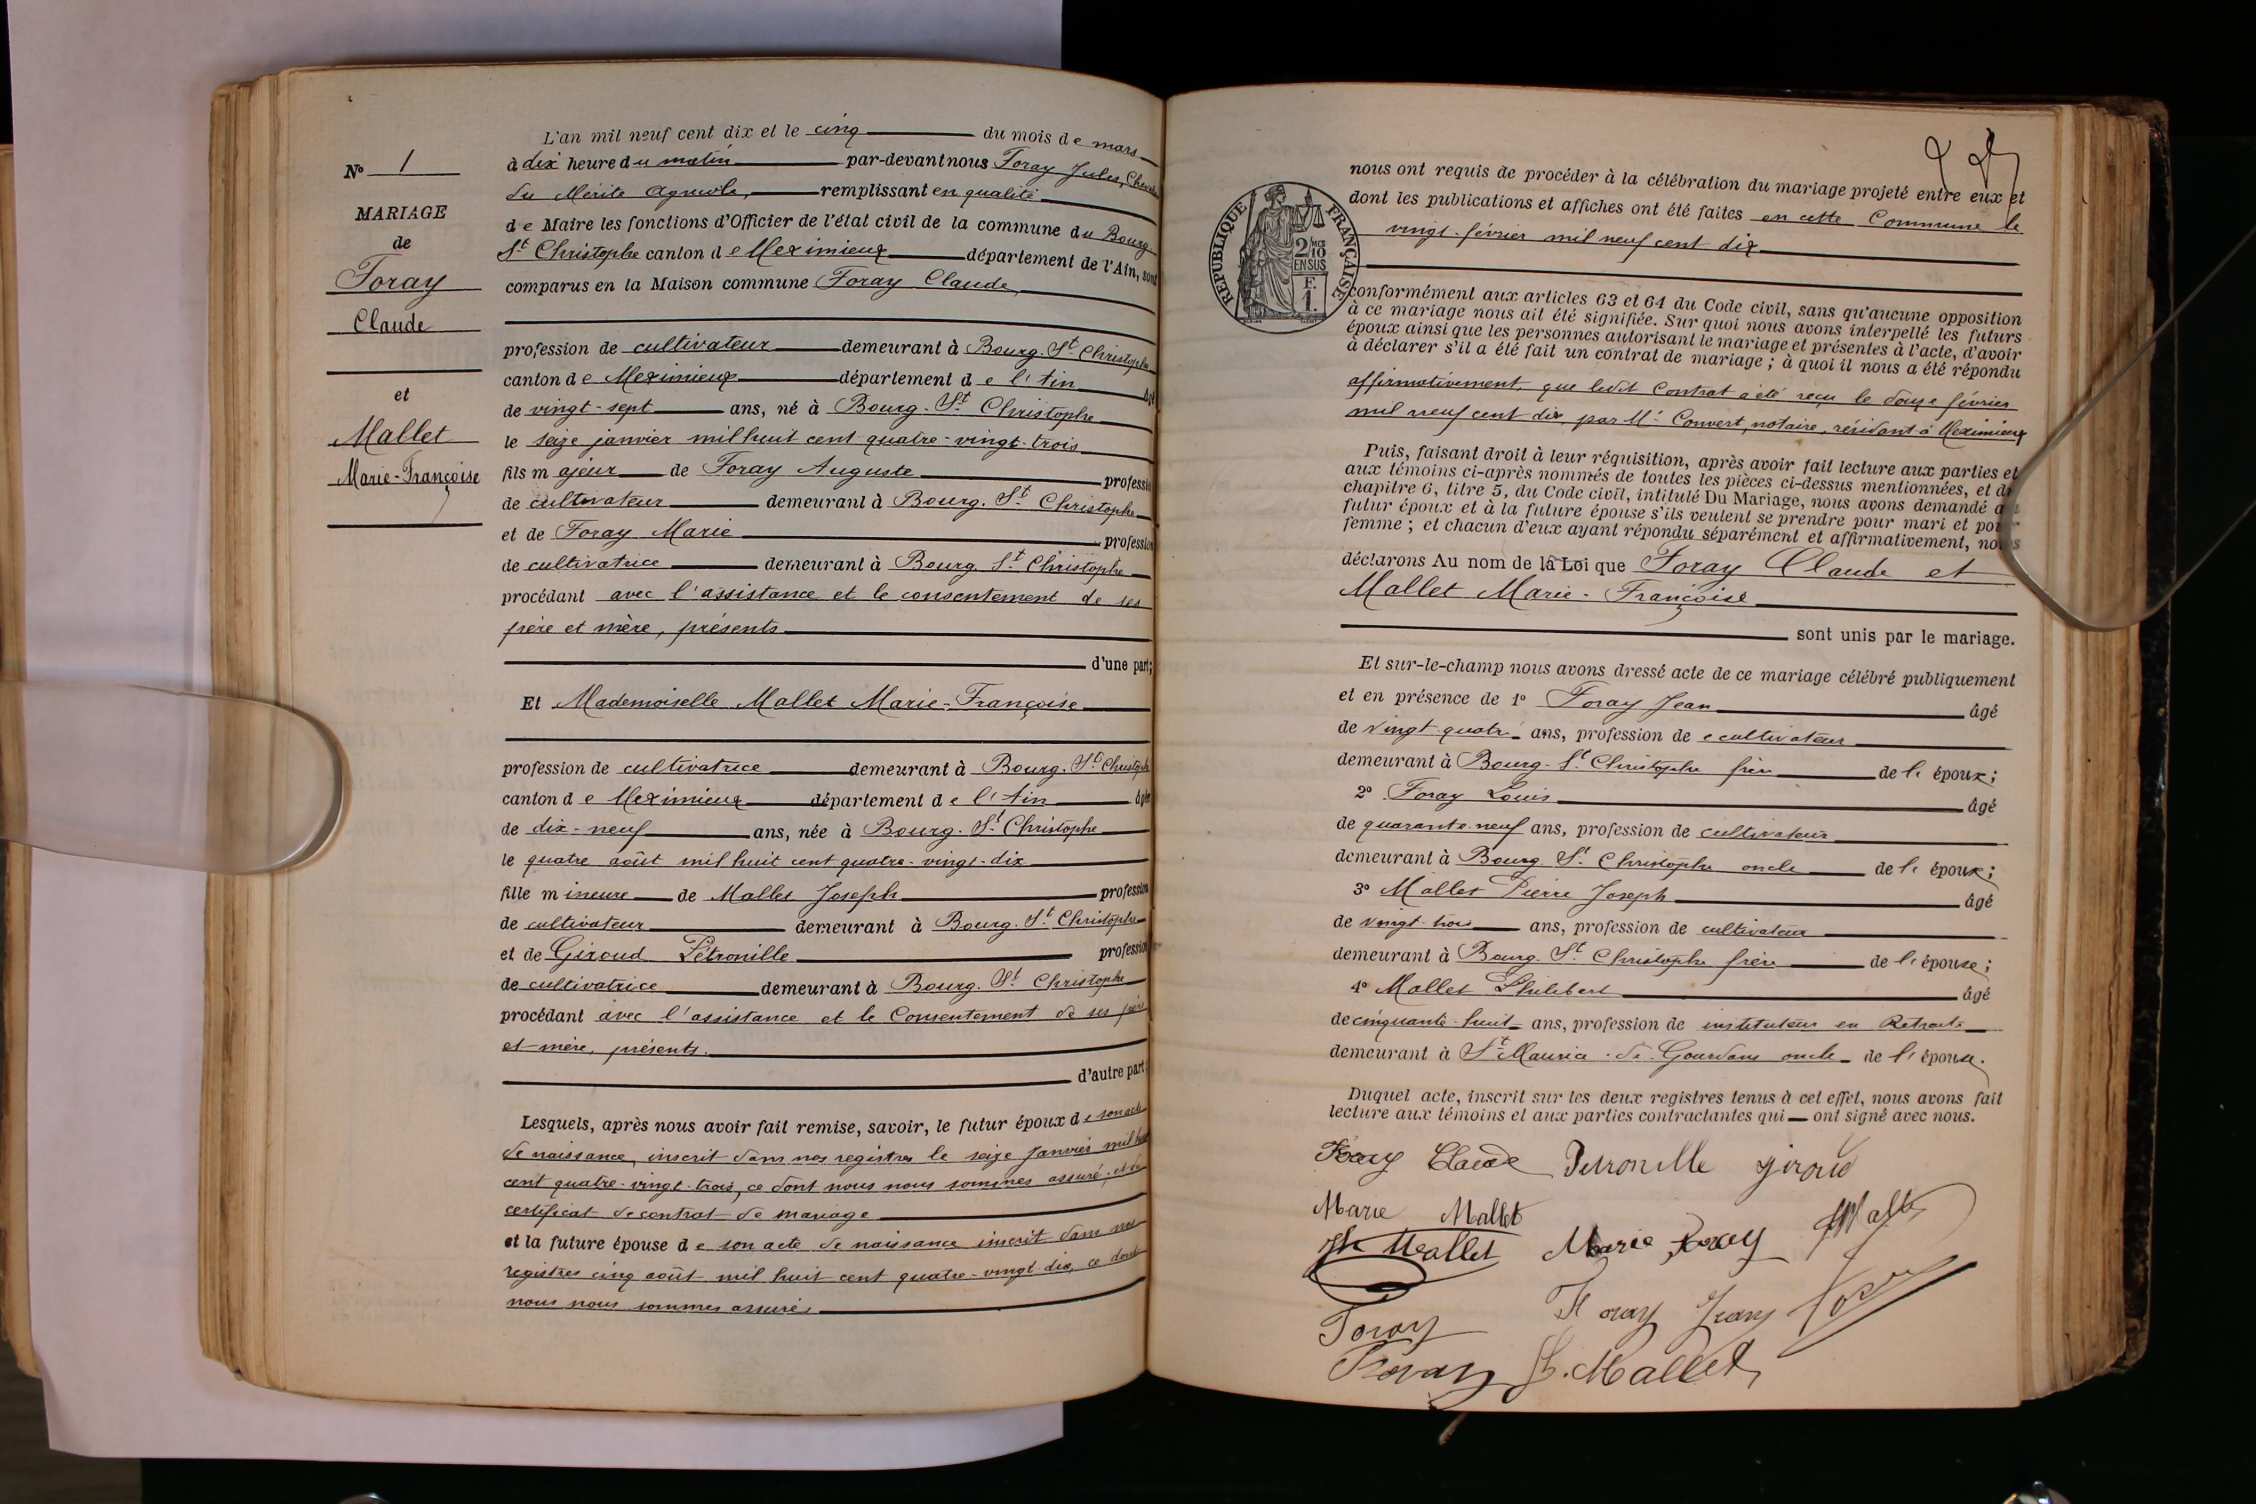 L'an mil neuf cent dix et le cinq du mois de mars
à dix heure du matin par-devant nous Foray Jules, Chevalier
du Mérite Agricole, remplissant en qualité
de Maire les fonctions d'Officier de l'état civil de la commune du Bourg-
St Christophe canton de Meximieux département de l'Ain, sont
comparus en la Maison commune Foray Claude,
profession de cultivateur demeurant à Bourg-St Christophe
canton de Meximieux département de l'Ain âgé
de vingt-sept ans, né à Bourg-St Christophe
le seize janvier mil huit cent quatre-vingt-trois
fils majeur de Foray Auguste profession
de cultivateur demeurant à Bourg-St Christophe
et de Foray Marie profession
de cultivatrice demeurant à Bourg-St Christophe
procédant avec l'assistance et le consentement de ses
père et mère, présents
d'une part;
Et Mademoiselle Mallet Marie-Françoise
profession de cultivatrice demeurant à Bourg-St Christophe
canton de Meximieux département de l'Ain âgée
de dix-neuf ans, née à Bourg-St Christophe
le quatre août mil huit cent quatre-vingt-dix
fille mineure de Mallet Joseph profession
de cultivateur demeurant à Bourg-St Christophe
et de Giroud Pétronille profession
de cultivatrice demeurant à Bourg-St Christophe
procédant avec l'assistance et le Consentement de ses père
et mère, présents.
d'autre part.
Lesquels, après nous avoir fait remise, savoir, le futur époux de son acte
de naissance, inscrit dans nos registres le seize Janvier mil huit
cent quatre-vingt-trois, ce dont nous nous sommes assuré; et du
certificat de contrat de mariage
et la future épouse de son acte de naissance inscrit dans nos
registres cinq août mil huit cent quatre-vingt-dix, ce dont
nous nous sommes assuré
No 1
MARIAGE
de
Foray
Claude
et
Mallet
Marie-Françoise
RÉPUBLIQUE FRANÇAISE
2/10
EN SUS
F.
1.
nous ont requis de procéder à la célébration du mariage projeté entre eux et
dont les publications et affiches ont été faites en cette Commune le
vingt février mil neuf cent dix
conformément aux articles 63 et 64 du Code civil, sans qu'aucune opposition
à ce mariage nous ait été signifiée. Sur quoi nous avons interpellé les futurs
époux ainsi que les personnes autorisant le mariage et présentes à l'acte, d'avoir
à déclarer s'il a été fait un contrat de mariage; à quoi il nous a été répondu
affirmativement, que ledit Contrat a été reçu le douze février
mil neuf cent dix, par Me Convert, notaire, résidant à Meximieux
Puis, faisant droit à leur réquisition, après avoir fait lecture aux parties et
aux témoins ci-après nommés de toutes les pièces ci-dessus mentionnées, et du
chapitre 6, titre 5, du Code civil, intitulé Du Mariage, nous avons demandé au
futur époux et à la future épouse s'ils veulent se prendre pour mari et pour
femme; et chacun d'eux ayant répondu séparément et affirmativement, nous
déclarons Au nom de la Loi que Foray Claude et
Mallet Marie-Françoise
sont unis par le mariage.
Et sur-le-champ nous avons dressé acte de ce mariage célébré publiquement
et en présence de 1° Foray Jean âgé
de vingt quatre ans, profession de cultivateur
demeurant à Bourg-St Christophe frère de l'époux;
2° Foray Louis âgé
de quarante-neuf ans, profession de cultivateur
demeurant à Bourg St Christophe oncle de l'époux;
3° Mallet Pierre Joseph âgé
de vingt-trois ans, profession de cultivateur
demeurant à Bourg-St Christophe frère de l'épouse;
4° Mallet Philibert âgé
de cinquante-huit ans, profession de instituteur en Retraite
demeurant à St Maurice-de-Gourdans oncle de l'épouse.
Duquel acte, inscrit sur les deux registres tenus à cet effet, nous avons fait
lecture aux témoins et aux parties contractantes qui ont signé avec nous.
Foray Claude Petronille giroud
Marie Mallet
Jh Mallet Marie Foray
Foray Foray Jean
Foray Ph. Mallet